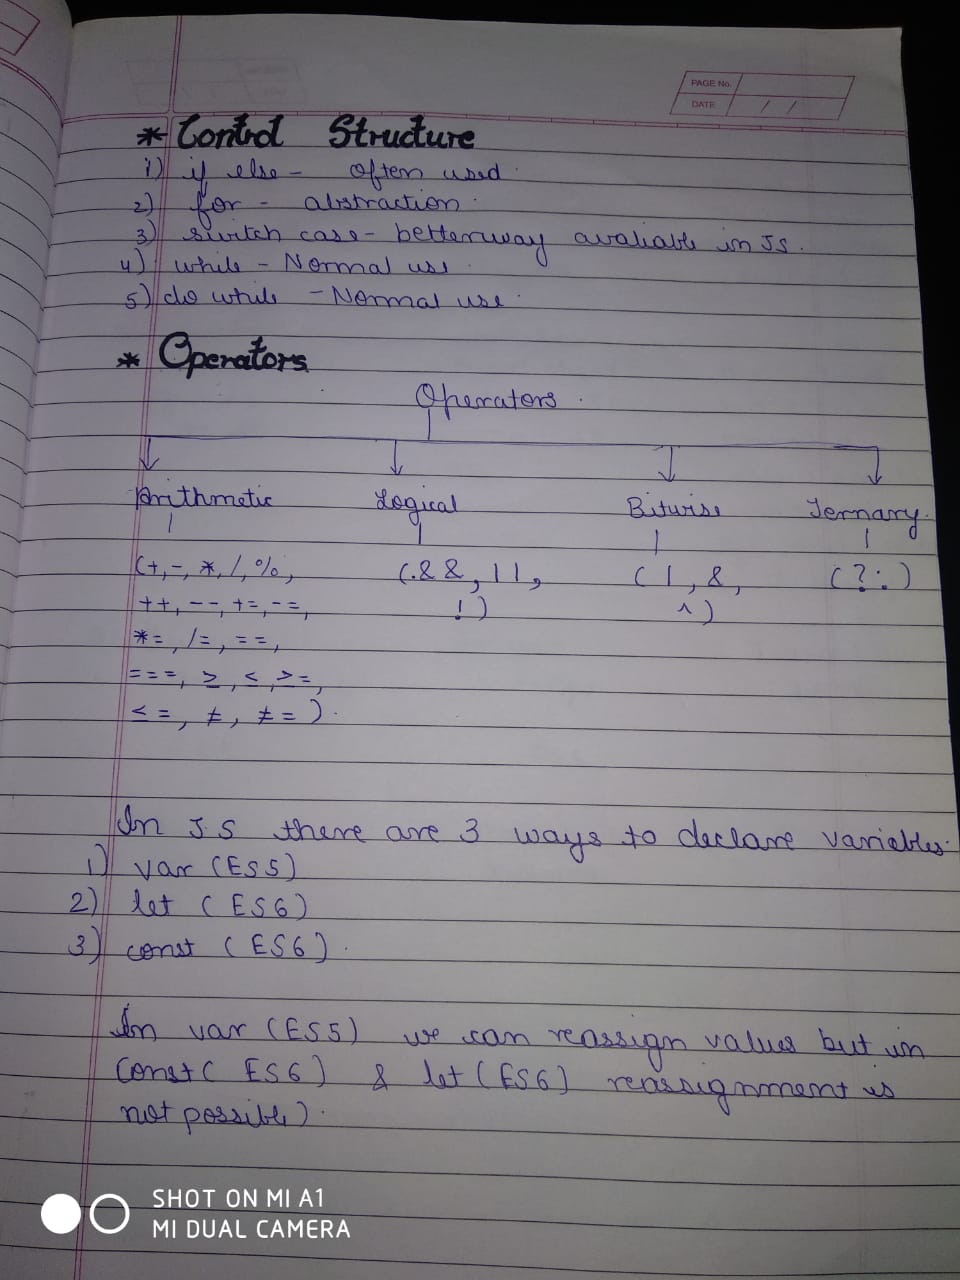 PAGE No.
DATE / /
* Control Structure
1) if else - often used.
2) for - abstraction.
3) switch case - betterway avaliable in JS.
4) while - Normal use.
5) do while - Normal use.
* Operators
Operators.
Arithmetic Logical Bitwise Ternary.
(+, -, *, /, %, (.&&, ||, ( |, &, (?:)
++, --, +=, -=, !) ^)
*=, /=, ==,
===, ≥, <, >=,
≤=, ≠, ≠=).
In J.S there are 3 ways to declare variables.
1) var (ES5)
2) let (ES6)
3) const (ES6).
In var (ES5) we can reassign values but in
Const (ES6) & let (ES6) reassignment is
not possible).
SHOT ON MI A1
MI DUAL CAMERA